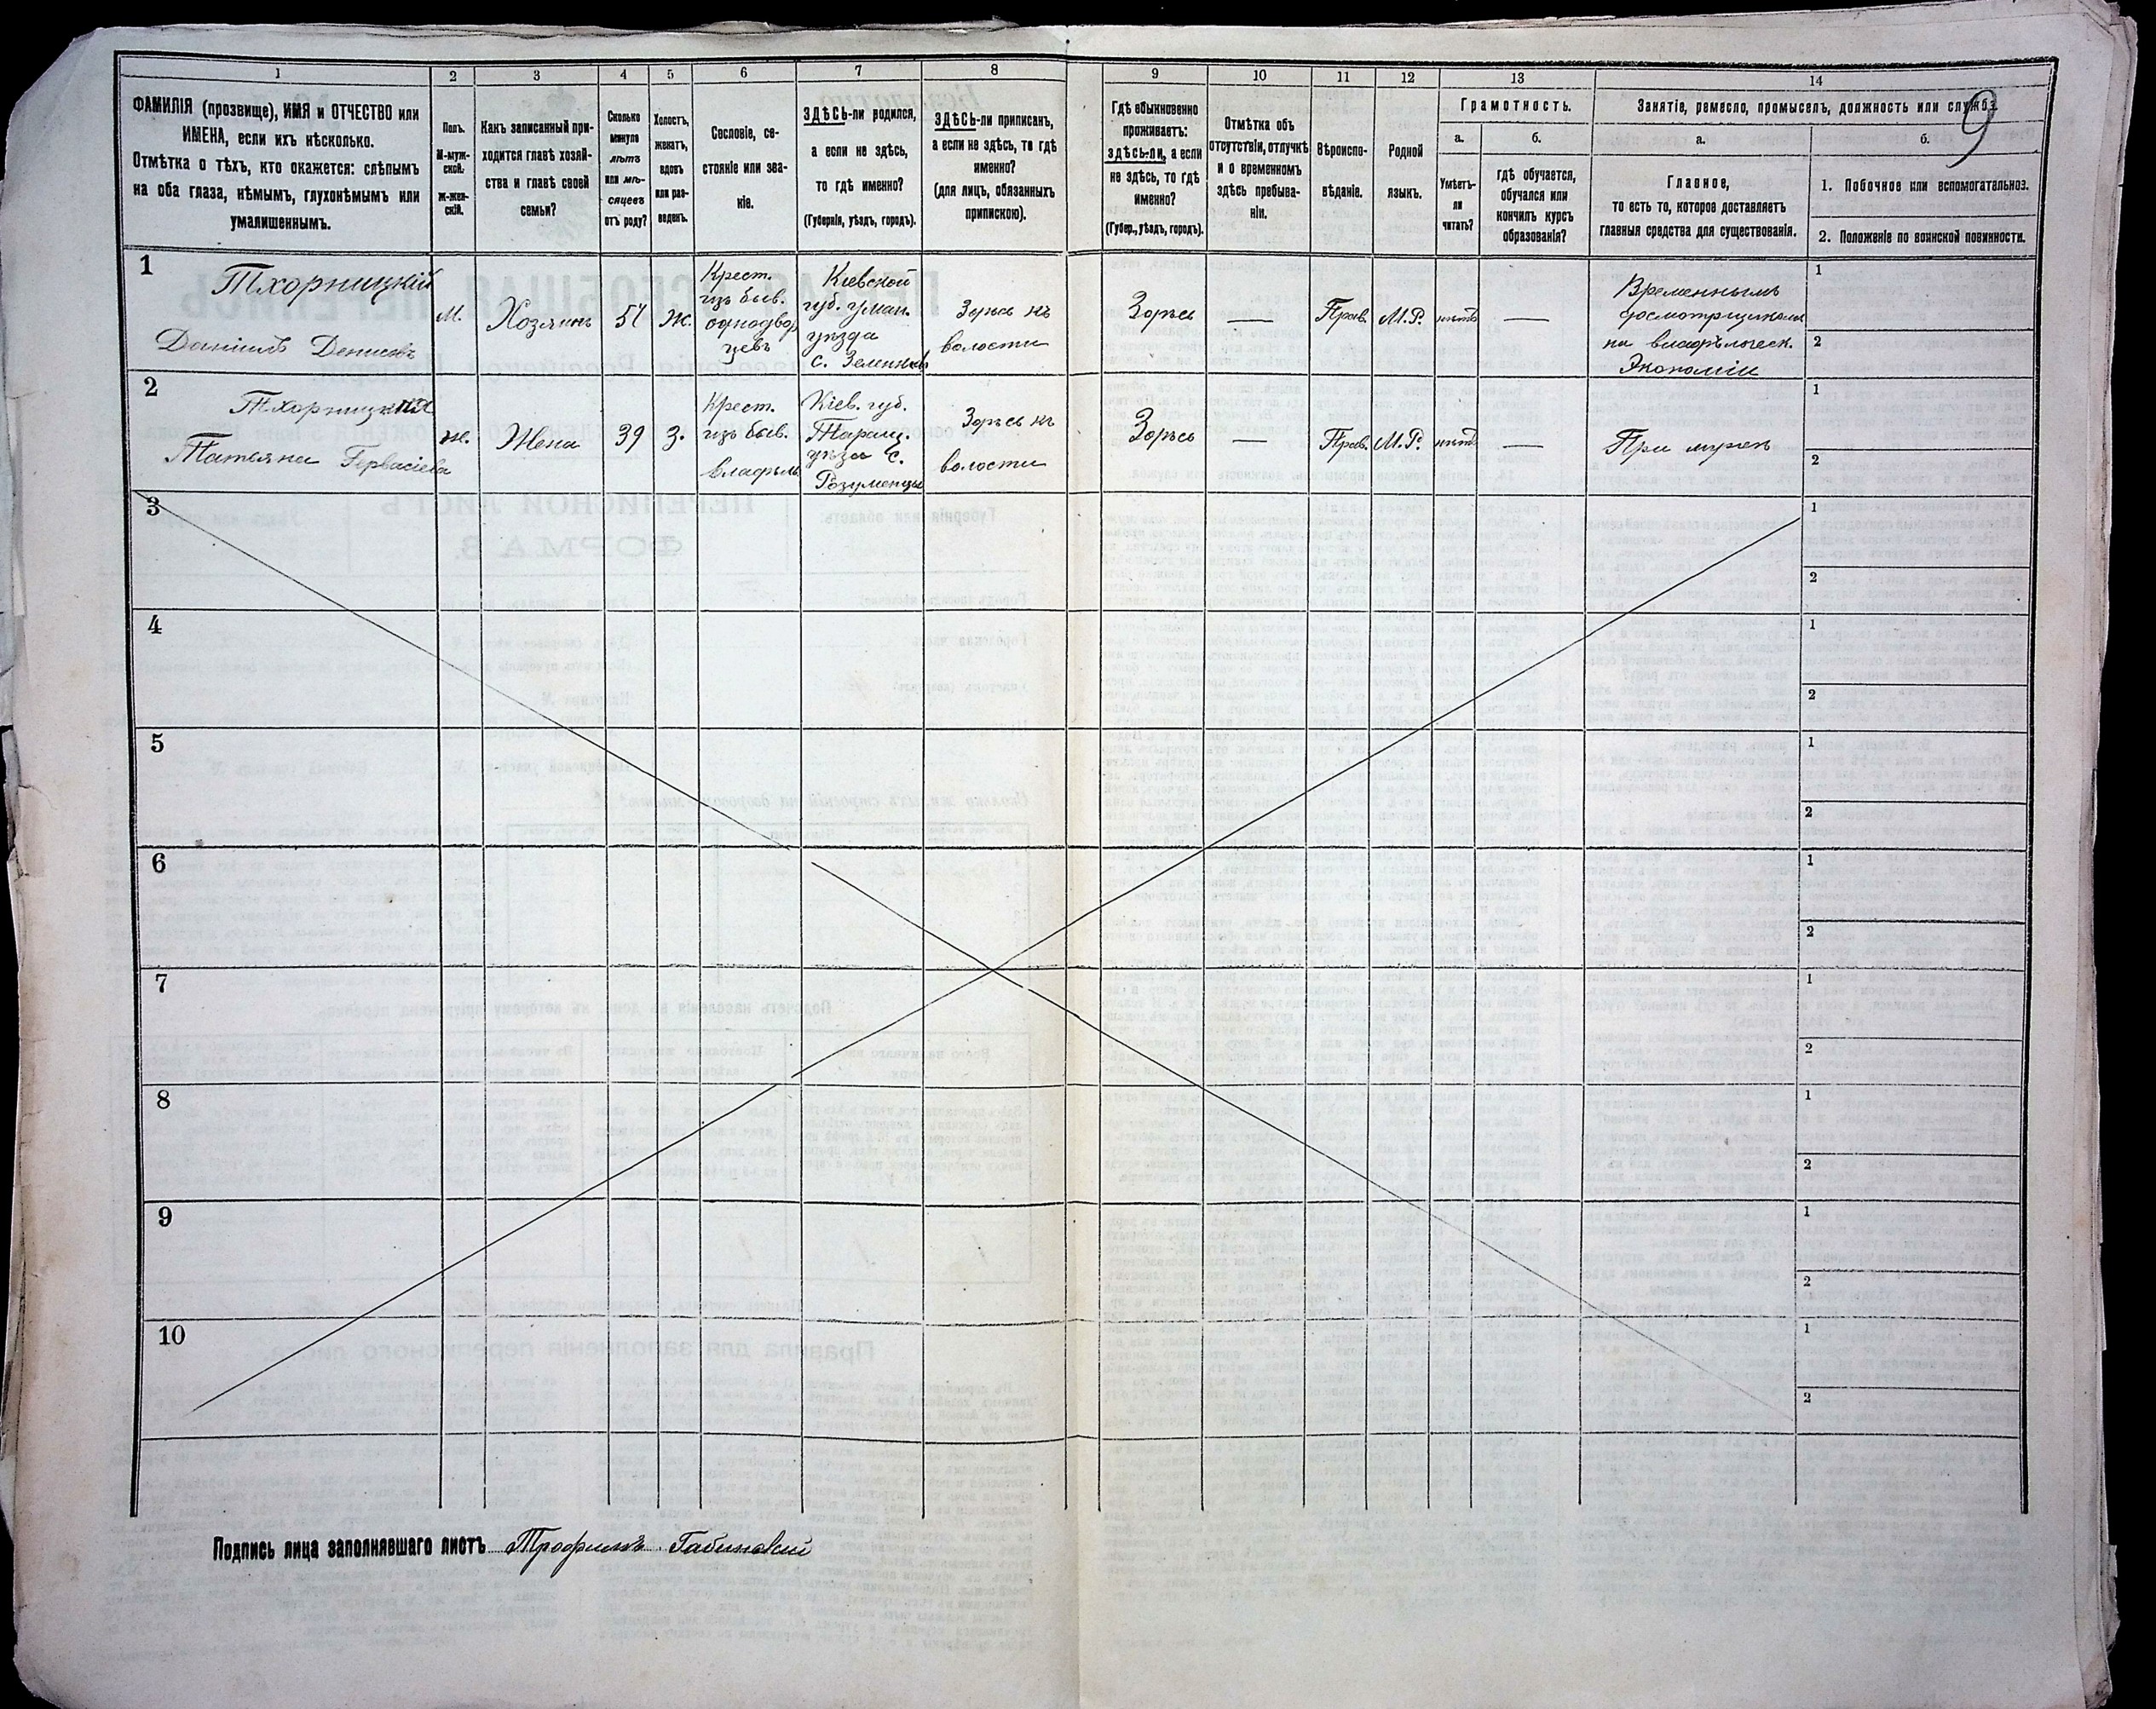 1 2 3 4 5 6 7 8 9 10 11 12 13 14
9
ФАМИЛІЯ (прозвище), ИМЯ и ОТЧЕСТВО или
ИМЕНА, если ихъ нѣсколько.
Отмѣтка о тѣхъ, кто окажется: слѣпымъ
на оба глаза, нѣмымъ, глухонѣмымъ или
умалишеннымъ.
Полъ.
М-муж-
ской.
Ж-жен-
скій.
Какъ записанный при-
ходится главѣ хозяй-
ства и главѣ своей
семьи?
Сколько
минуло
лѣтъ
или мѣ-
сяцевъ
отъ роду?
Холостъ,
женатъ,
вдовъ
или раз-
веденъ.
Сословіе, со-
стояніе или зва-
ніе.
ЗДѢСЬ-ли родился,
а если не здѣсь,
то гдѣ именно?
(Губернія, уѣздъ, городъ).
ЗДѢСЬ-ли приписанъ,
а если не здѣсь, то гдѣ
именно?
(для лицъ, обязанныхъ
припискою).
Гдѣ обыкновенно
проживаетъ:
здѣсь-ли, а если
не здѣсь, то гдѣ
именно?
(Губер., уѣздъ, городъ).
Отмѣтка объ
отсутствіи, отлучкѣ
и о временномъ
здѣсь пребыва-
ніи.
Вѣроиспо-
вѣданіе.
Родной
языкъ.
Грамотность.
а.
Умѣетъ-
ли
читать?
б.
гдѣ обучается,
обучался или
кончилъ курсъ
образованія?
Занятіе, ремесло, промыселъ, должность или служба.
а.
Главное,
то есть то, которое доставляетъ
главныя средства для существованія.
б.
1. Побочное или вспомогательное.
2. Положеніе по воинской повинности.
1
Тхорницкій
Даніилъ Денисовъ
М.
Хозяинъ
Ж.
Крест.
изъ быв.
однодвор
цевъ
Кіевской
губ. Уман.
уѣзда
с. Зеленковъ
волости
—
Прав.
М.Р.
нѣтъ
—
Временнымъ
досмотрщикомъ
на владѣльческ.
Экономіи
1
2
2
Тхорницкая
Татьяна Гервасіева
ж.
Жена
39
З.
Крест.
изъ быв.
владѣль
Кіев. губ.
Таращ.
уѣзда с.
Розуменцы
волости
—
Прав.
М.Р.
нѣтъ
—
При мужѣ
1
2
3
1
2
4
1
2
5
1
2
6
1
2
7
1
2
8
1
2
9
1
2
10
1
2
Подпись лица заполнявшаго листъ Трофимъ Габинскій